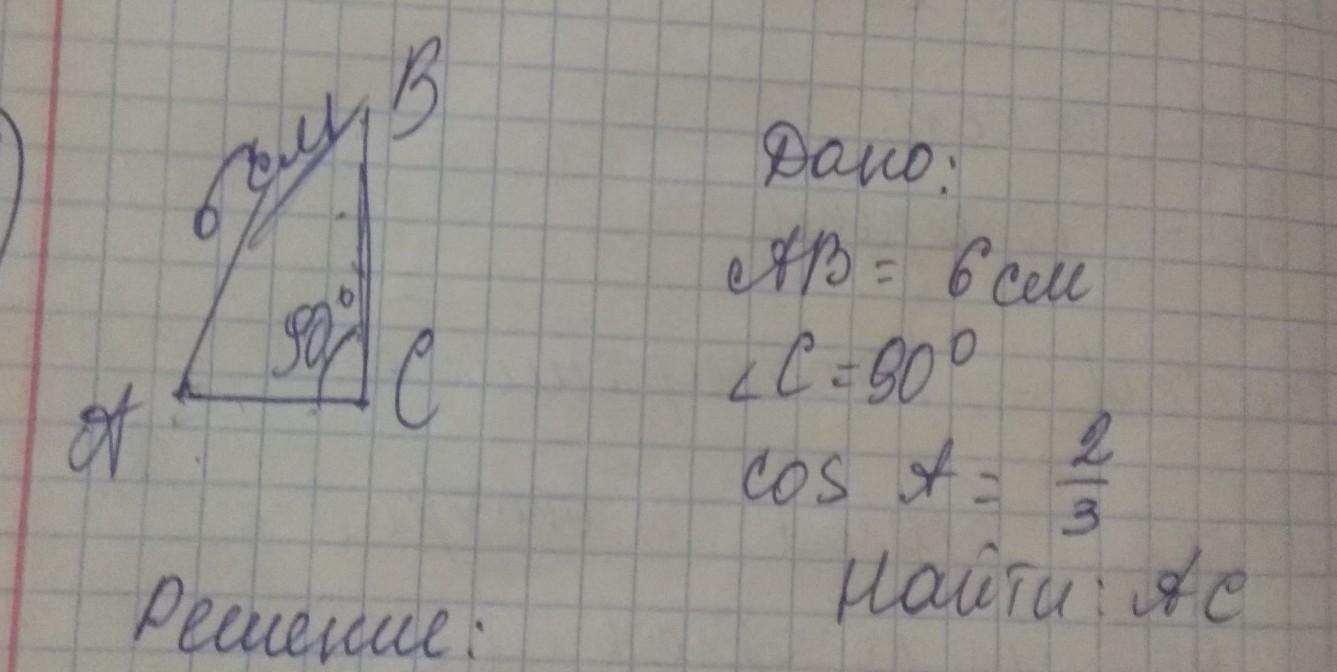 B
6 см
90°
A
C
Дано:
AB = 6 см
∠C = 90°
cos A = 2/3
Найти: AC
Решение: